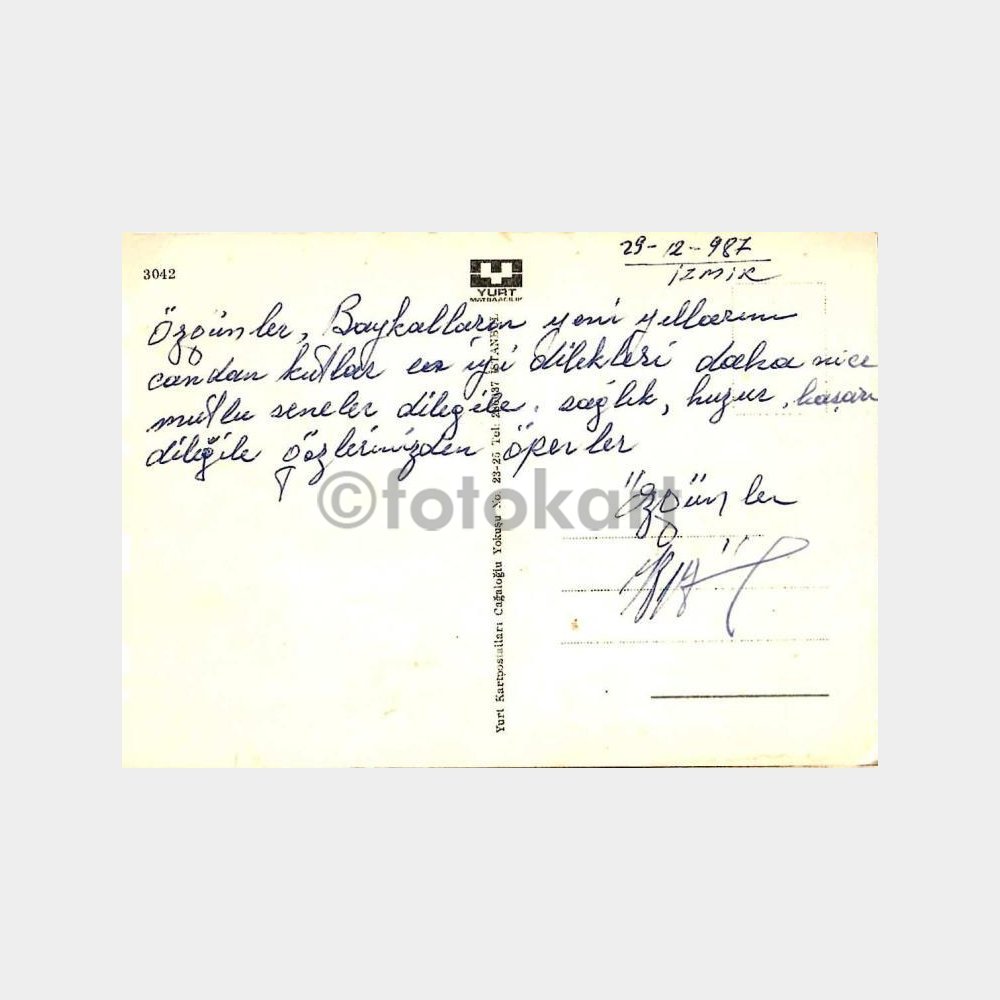 29-12-987
İZMİR
3042
YURT
MATBAACILIK
Özgünler, Baykalların yeni yıllarını
candan kutlar en iyi dilekleri daha nice
mutlu seneler dileğile. sağlık, huzur, başarı
dileğile gözlerinizden öperler
Özgünler
©fotokart
Yurt Kartpostalları Cağaloğlu Yokuşu No. 23-25 Tel: İSTANBUL